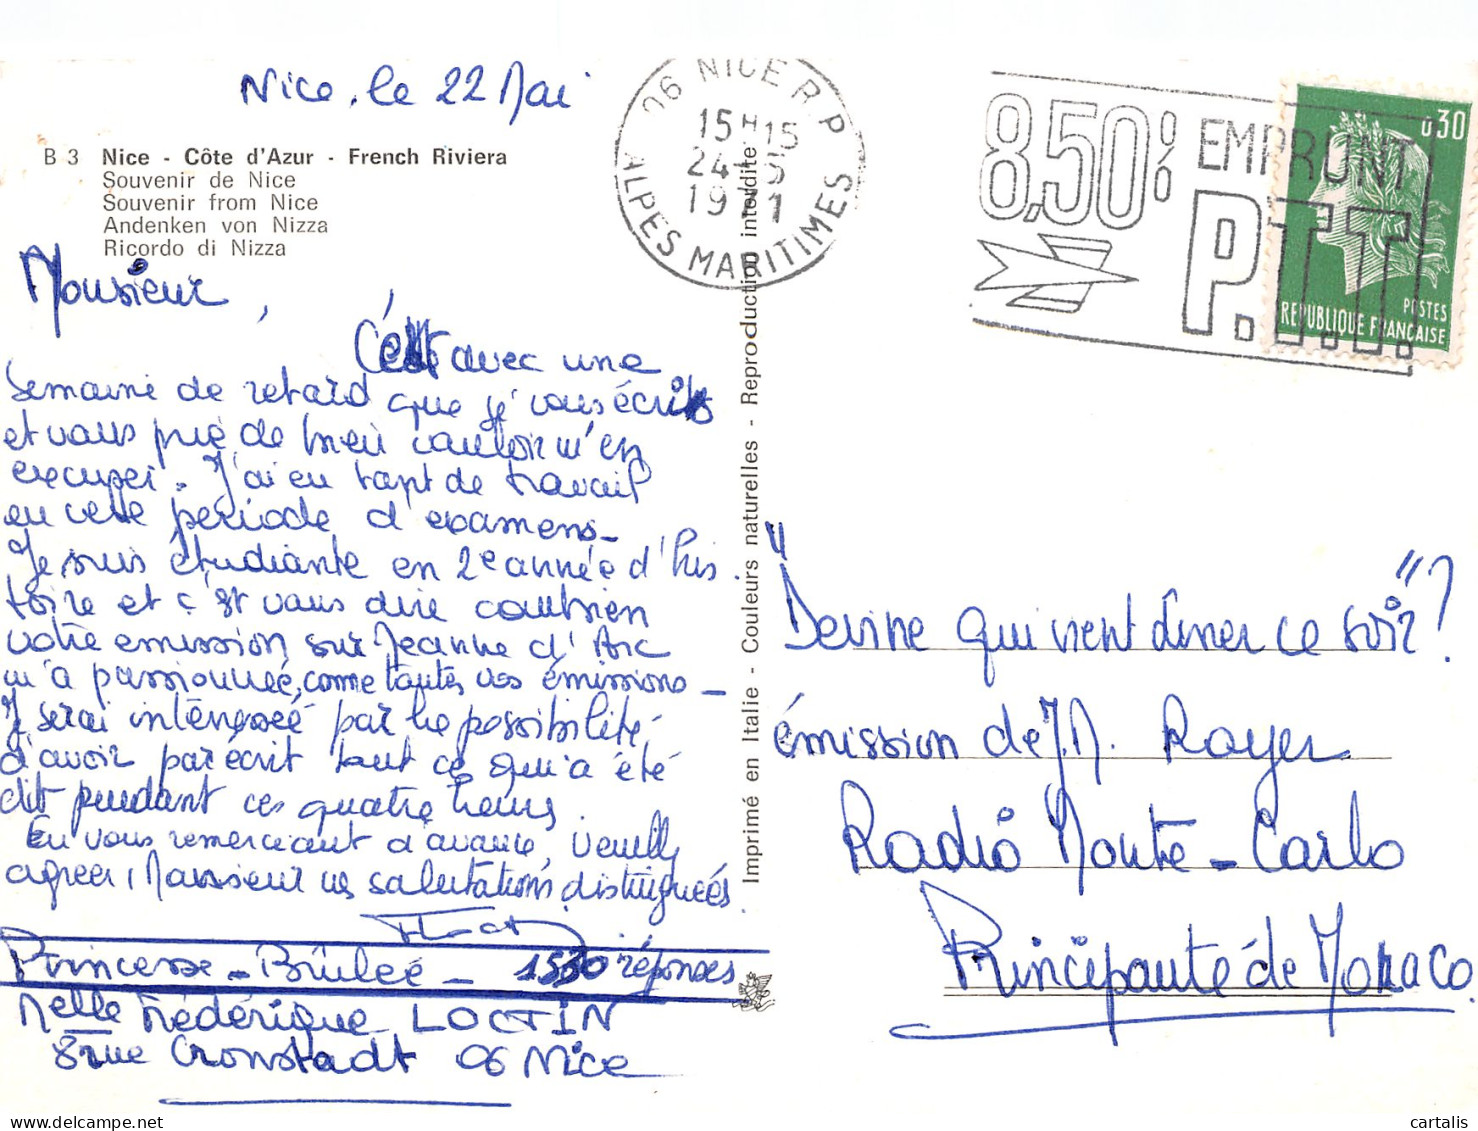 Nice, le 22 Mai
B 3 Nice - Côte d'Azur - French Riviera
Souvenir de Nice
Souvenir from Nice
Andenken von Nizza
Ricordo di Nizza
Monsieur,
C'est avec une
semaine de retard que je vous écris
et vous prie de bien vouloir m'en
excuser. J'ai eu tant de travail
en cette période d'examens_
Je suis étudiante en 2e année d'his
toire et c'est vous dire combien
votre émission sur Jeanne d'Arc
m'a passionnée, comme toutes vos émissions_
Je serai intéressée par la possibilité
d'avoir par écrit tout ce qui a été
dit pendant ces quatre heures.
En vous remerciant d'avance, Veuillez
agréer, Monsieur mes salutations distinguées.
Princesse - Brûlée - 1530 réponses
Melle Frédérique LOCTIN
8 rue Cronstadt 06 Nice
06 NICE R.P
15H15
24-5
1971
ALPES MARITIMES
8,50%
EMPRUNT
P.T.T.
0,30
POSTES
REPUBLIQUE FRANÇAISE
Imprimé en Italie - Couleurs naturelles - Reproduction interdite
"Devine qui vient diner ce soir"?
émission de J.M. Royer
Radio Monte-Carlo
Principauté de Monaco
cartalis